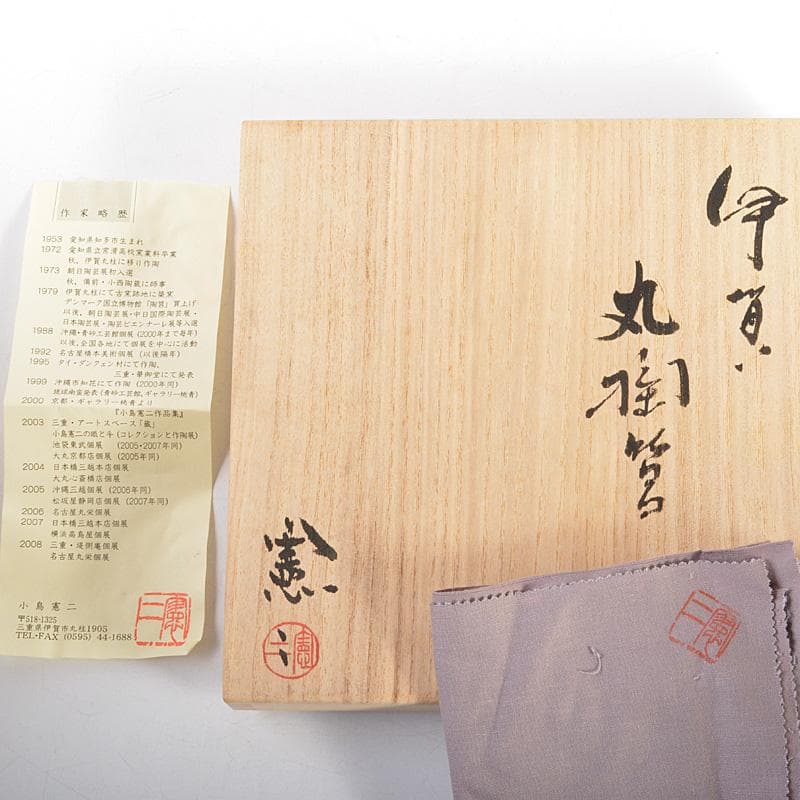 作家略歴
1953 愛知県知多市生まれ
1972 愛知県立常滑高校窯業科卒業
秋、伊賀丸柱に移り作陶
1973 朝日陶芸展初入選
秋、備前・小西陶蔵に師事
1979 伊賀丸柱にて古窯跡地に築窯
デンマーク国立博物館「陶筥」買上げ
以後、朝日陶芸展・中日国際陶芸展・
日本陶芸展・陶芸ビエンナーレ展等入選
1988 沖縄・青砂工芸館個展(2000年まで毎年)
以後、全国各地にて個展を中心に活動
1992 名古屋橋本美術個展(以後隔年)
1995 タイ・ダンクェン村にて作陶、
三重・華御堂にて発表
1999 沖縄市知花にて作陶(2000年同)
琉球南蛮発表(青砂工芸館、ギャラリー桃青)
2000 京都・ギャラリー桃青より
『小島憲二作品集』
2003 三重・アートスペース「蔵」
小島憲二の眼と手(コレクションと作陶展)
池袋東武個展 (2005・2007年同)
大丸京都店個展 (2005年同)
2004 日本橋三越本店個展
大丸心斎橋店個展
2005 沖縄三越個展(2006年同)
松坂屋静岡店個展(2007年同)
2006 名古屋丸栄個展
2007 日本橋三越本店個展
横浜高島屋個展
2008 三重・堤側庵個展
名古屋丸栄個展
小島憲二
〒518-1325
三重県伊賀市丸柱1905
TEL・FAX (0595) 44-1688
憲二
伊賀
丸陶筥
憲二
憲二